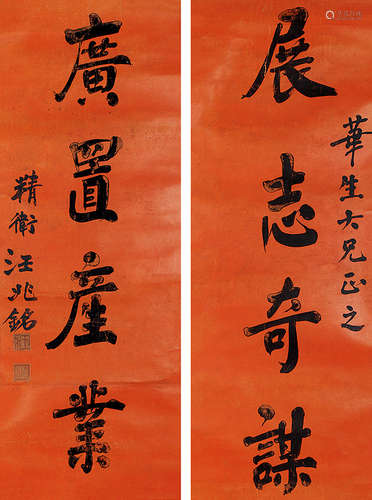 華生大兄正之
展志奇謀
廣置産業
精衛汪兆銘